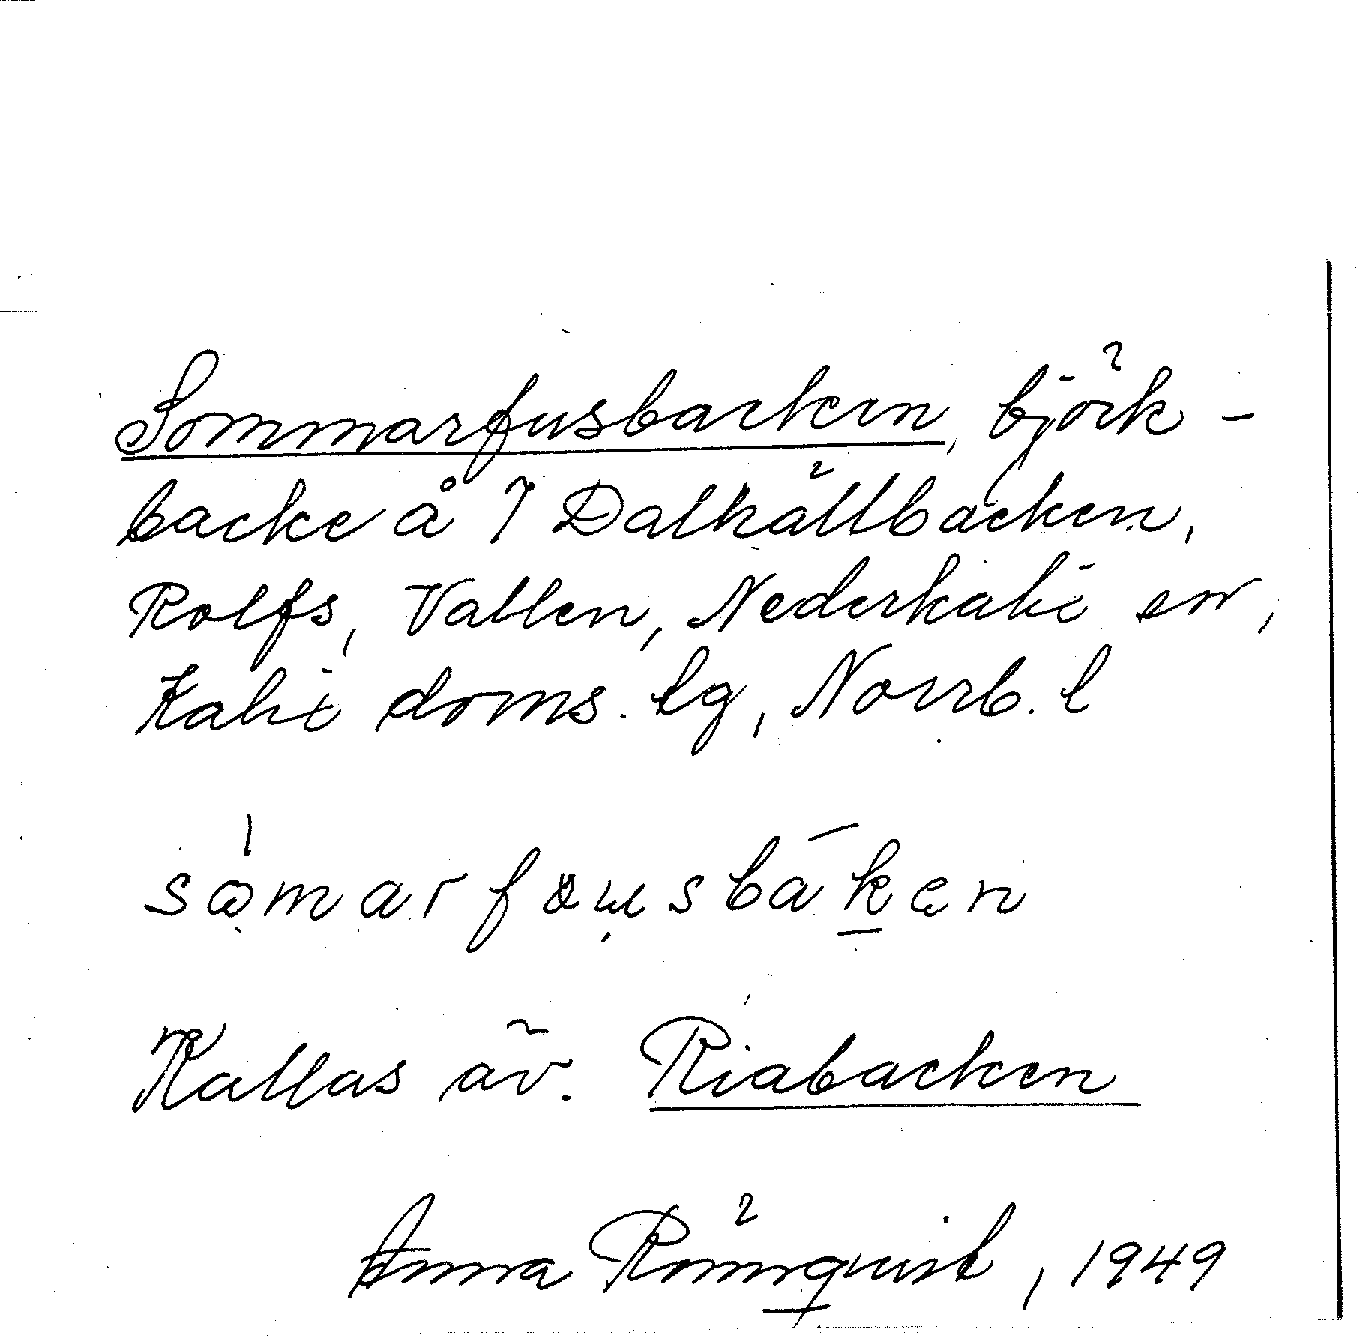 Sommarfusbacken, björk-
backe å 7 Dalhällbacken,
Rolfs, Vallen, Nederkalix sn,
Kalix doms. lg, Norrb. l
Kallas äv. Riabacken
Anna Rönnqvist, 1949